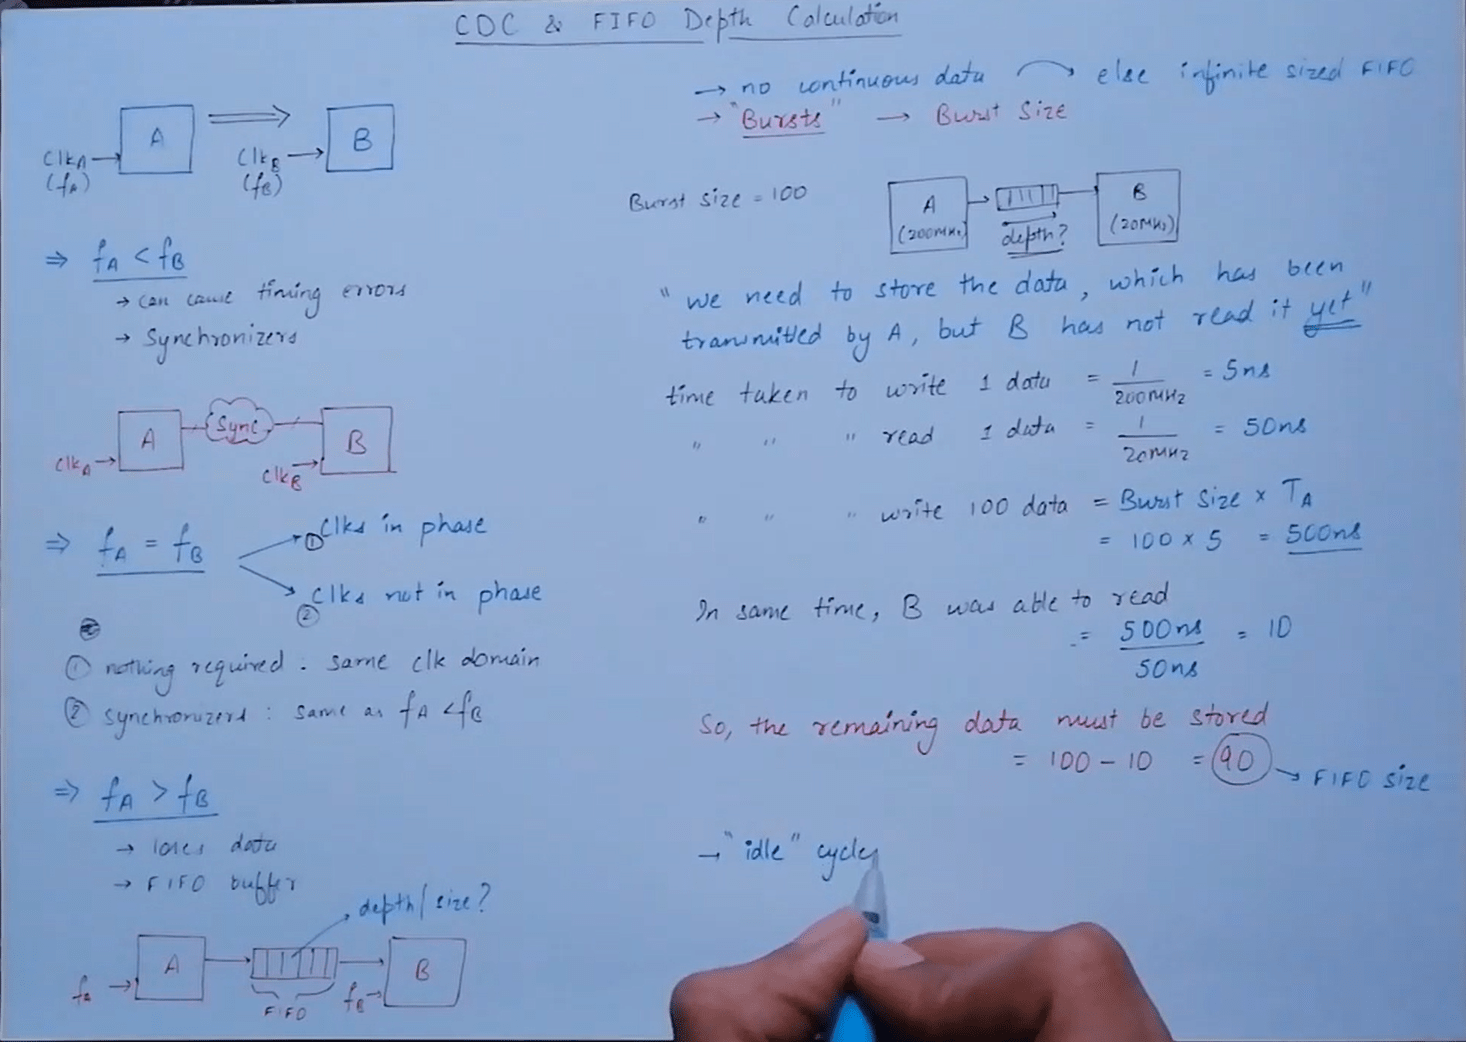 CDC & FIFO Depth Calculation
A
B
ClkA
(fA)
ClkB
(fB)
⇒ fA < fB
→ can cause timing errors
→ Synchronizers
A
Sync
B
ClkA
ClkB
⇒ fA = fB
① Clks in phase
② Clks not in phase
① nothing required : same clk domain
② synchronizers : same as fA < fB
⇒ fA > fB
→ loses data
→ FIFO buffer
depth/size?
A
B
FIFO
fB
→ no continuous data
else infinite sized FIFO
→ "Bursts" → Burst Size
Burst size = 100
A
(200MHz)
depth?
B
(20MHz)
"we need to store the data, which has been
transmitted by A, but B has not read it yet"
time taken to write 1 data = 1/200MHz = 5ns
" " " read 1 data = 1/20MHz = 50ns
" " " write 100 data = Burst Size × TA
= 100 × 5 = 500ns
In same time, B was able to read
= 500ns/50ns = 10
So, the remaining data must be stored
= 100 - 10 = 90 → FIFO size
→ "idle" cycles